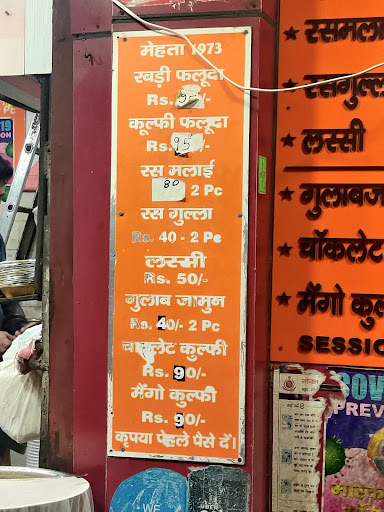 मेहता 1973
रबड़ी फलूदा
Rs. 95/-
कूल्फी फलूदा
Rs. 95/-
रस मलाई
80 2 Pc
रस गुल्ला
Rs. 40 - 2 Pc
लस्सी
Rs. 50/-
गुलाब जामुन
Rs. 40/- 2 Pc
चाकलेट कुल्फी
Rs. 90/-
मैंगो कुल्फी
Rs. 90/-
कृपया पेहले पैसे दें।
★ रसमला
★ रसगुल्ल
★ लस्सी
★ गुलाबज
★ चॉकलेट
★ मैंगो कुल
SESSIO
PREV
WE
UBER